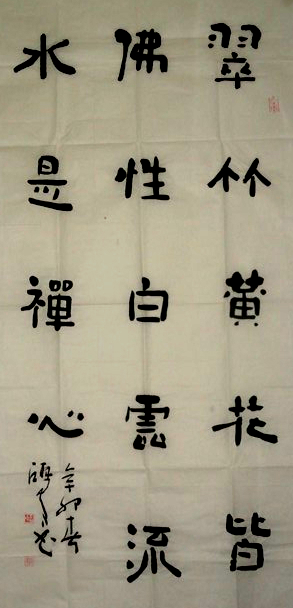 翠竹黄花皆
佛性白雲流
水是禪心
辛卯春